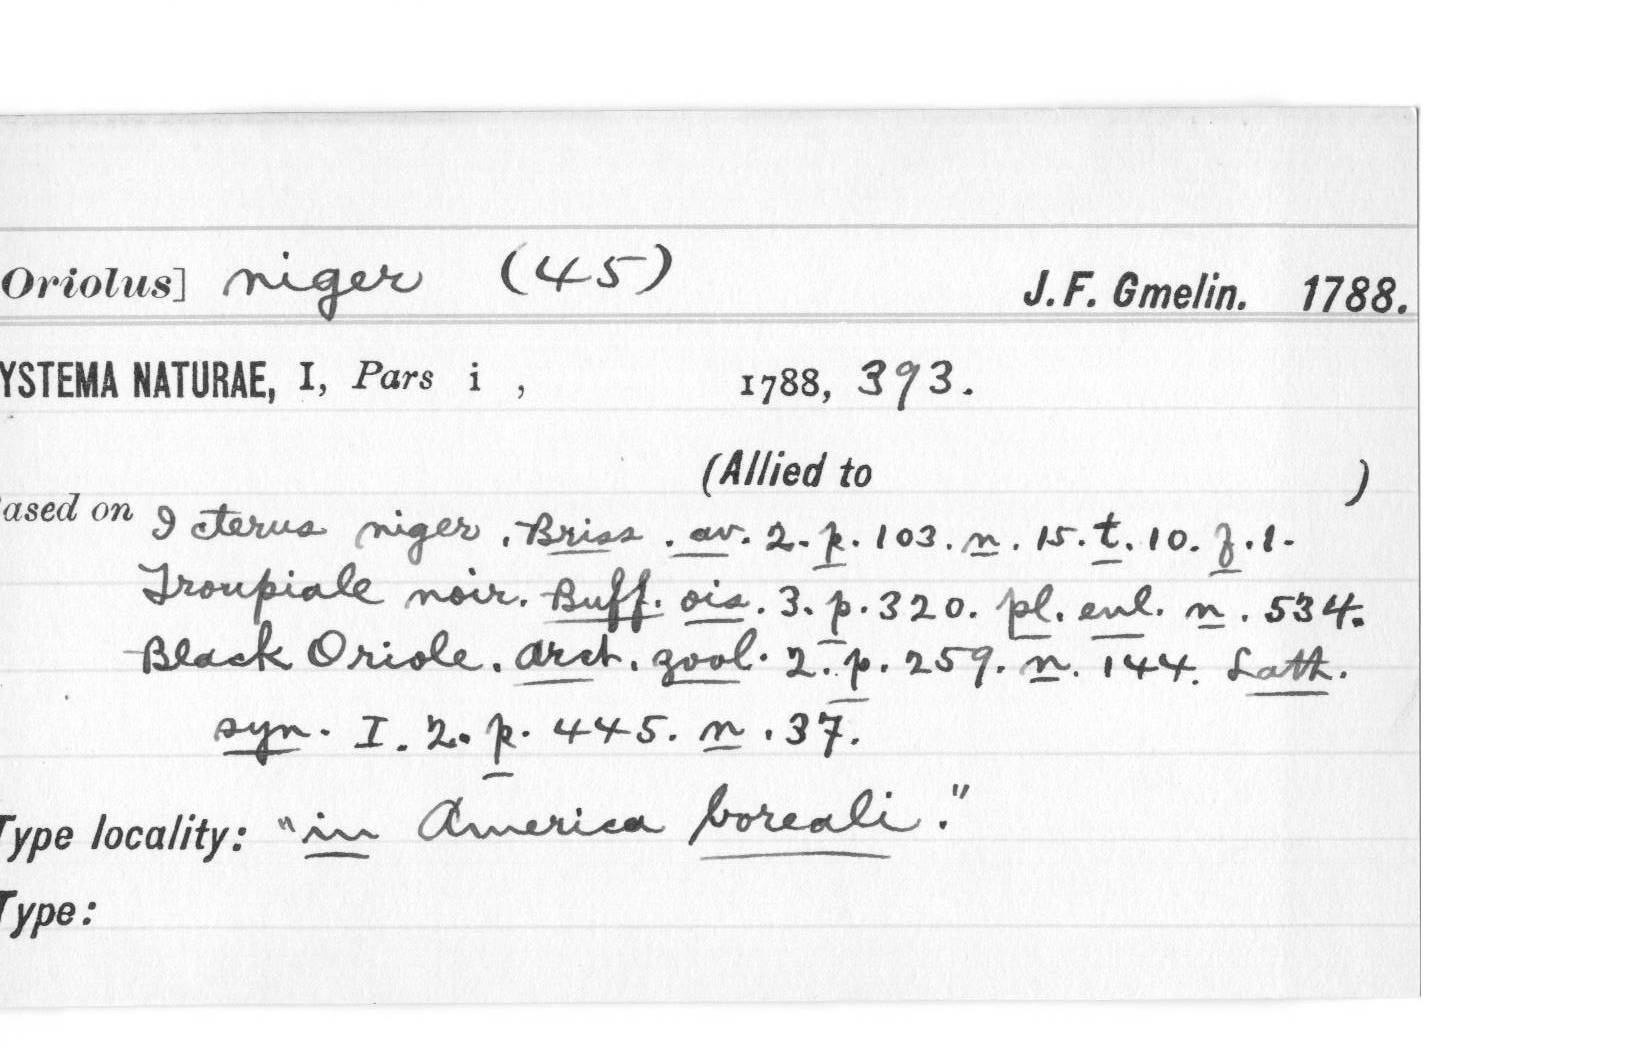 Oriolus] niger (45) J. F. Gmelin. 1788.
YSTEMA NATURAE, I, Pars i , 1788, 393.
(Allied to )
ased on Icterus niger. Briss. av. 2. p. 103. n. 15. t. 10. f. 1.
Troupiale noir. Buff. ois. 3. p. 320. pl. enl. n. 534.
Black Oriole. arct. zool. 2. p. 259. n. 144. Lath.
syn. I. 2. p. 445. n. 37.
Type locality: "in America boreali."
Type: